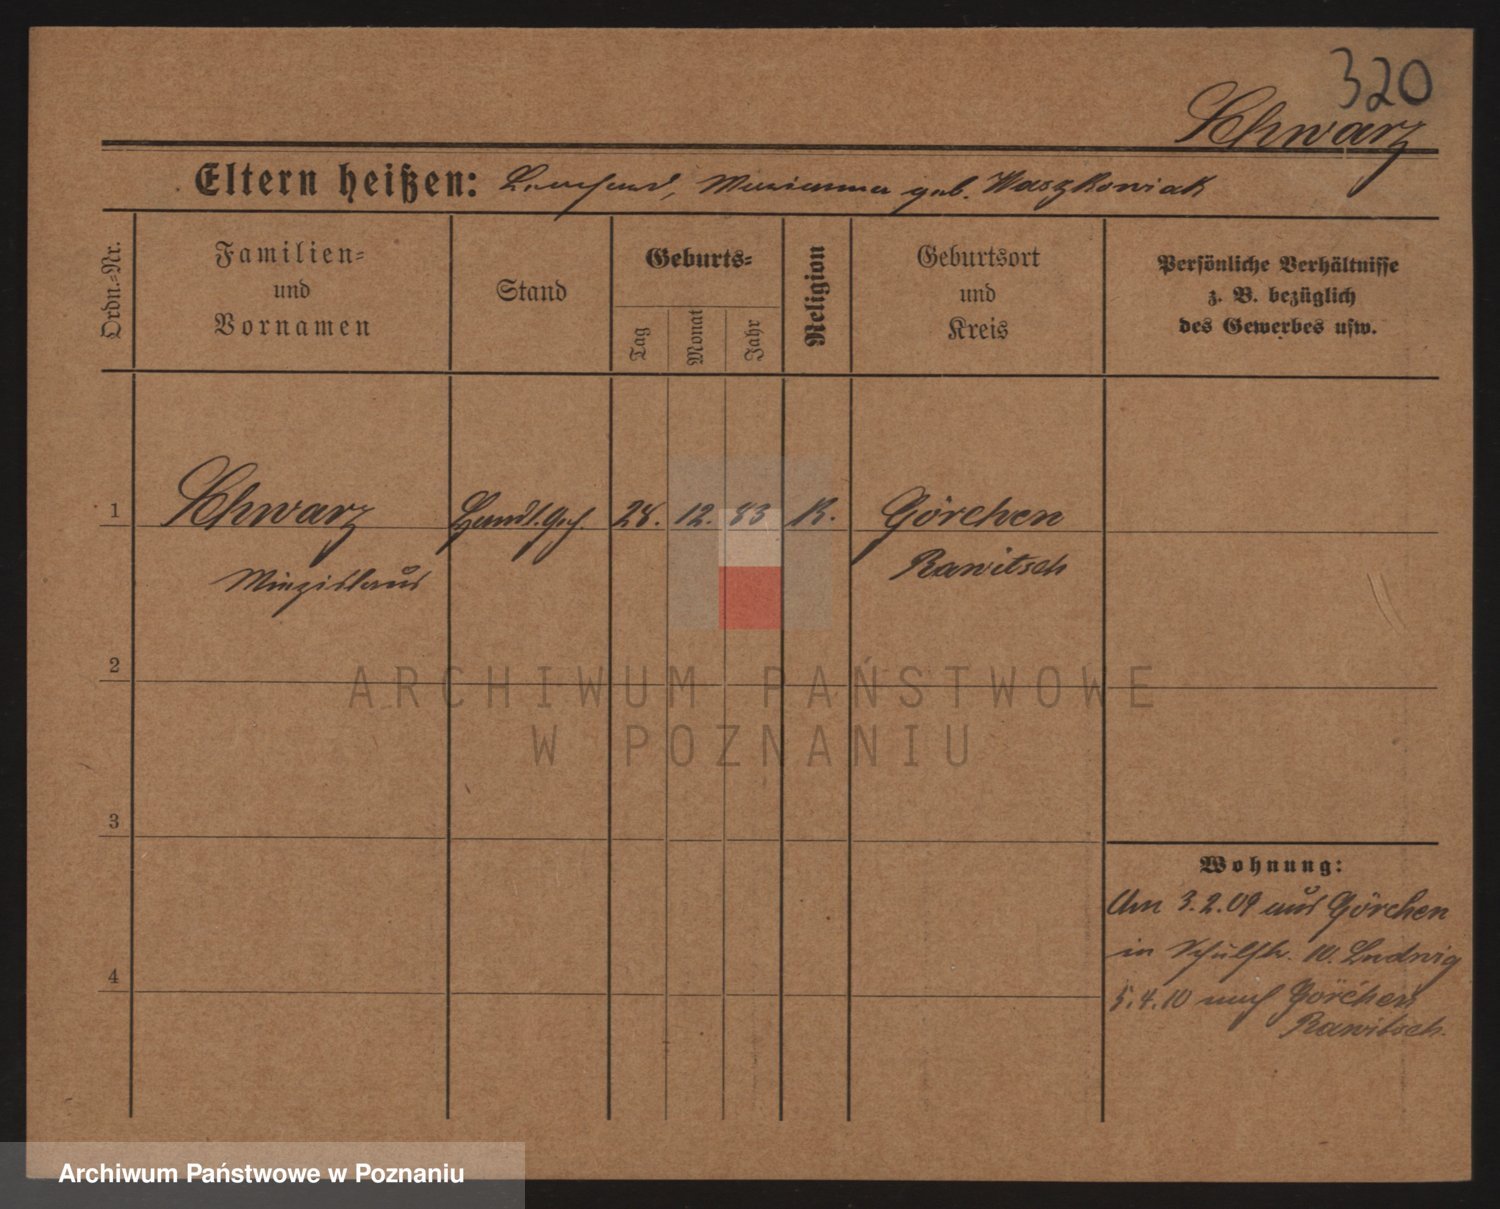 320
Schwarz
Eltern heißen: Marianna geb. Waszkowiak
Ordn.-Nr.
Familien-
und
Vornamen
Stand
Geburts-
Tag
Monat
Jahr
Religion
Geburtsort
und
Kreis
Persönliche Verhältnisse
z. B. bezüglich
des Gewerbes usw.
1
Schwarz Handl. Geh. 28. 12. 83 K. Görchen
Miezislaus Rawitsch
2
ARCHIWUM PAŃSTWOWE
W POZNANIU
3
Wohnung:
Am 3.2.09 aus Görchen
in Schulstr. 10. Ludwig
4
5.4.10 nach Görchen
Rawitsch.
Archiwum Państwowe w Poznaniu